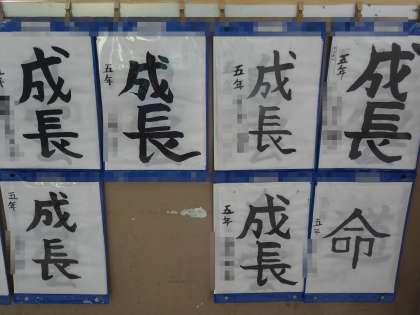 五年
成長
五年
成長
五年
成長
五年
成長
五年
成長
五年
成長
五年
命